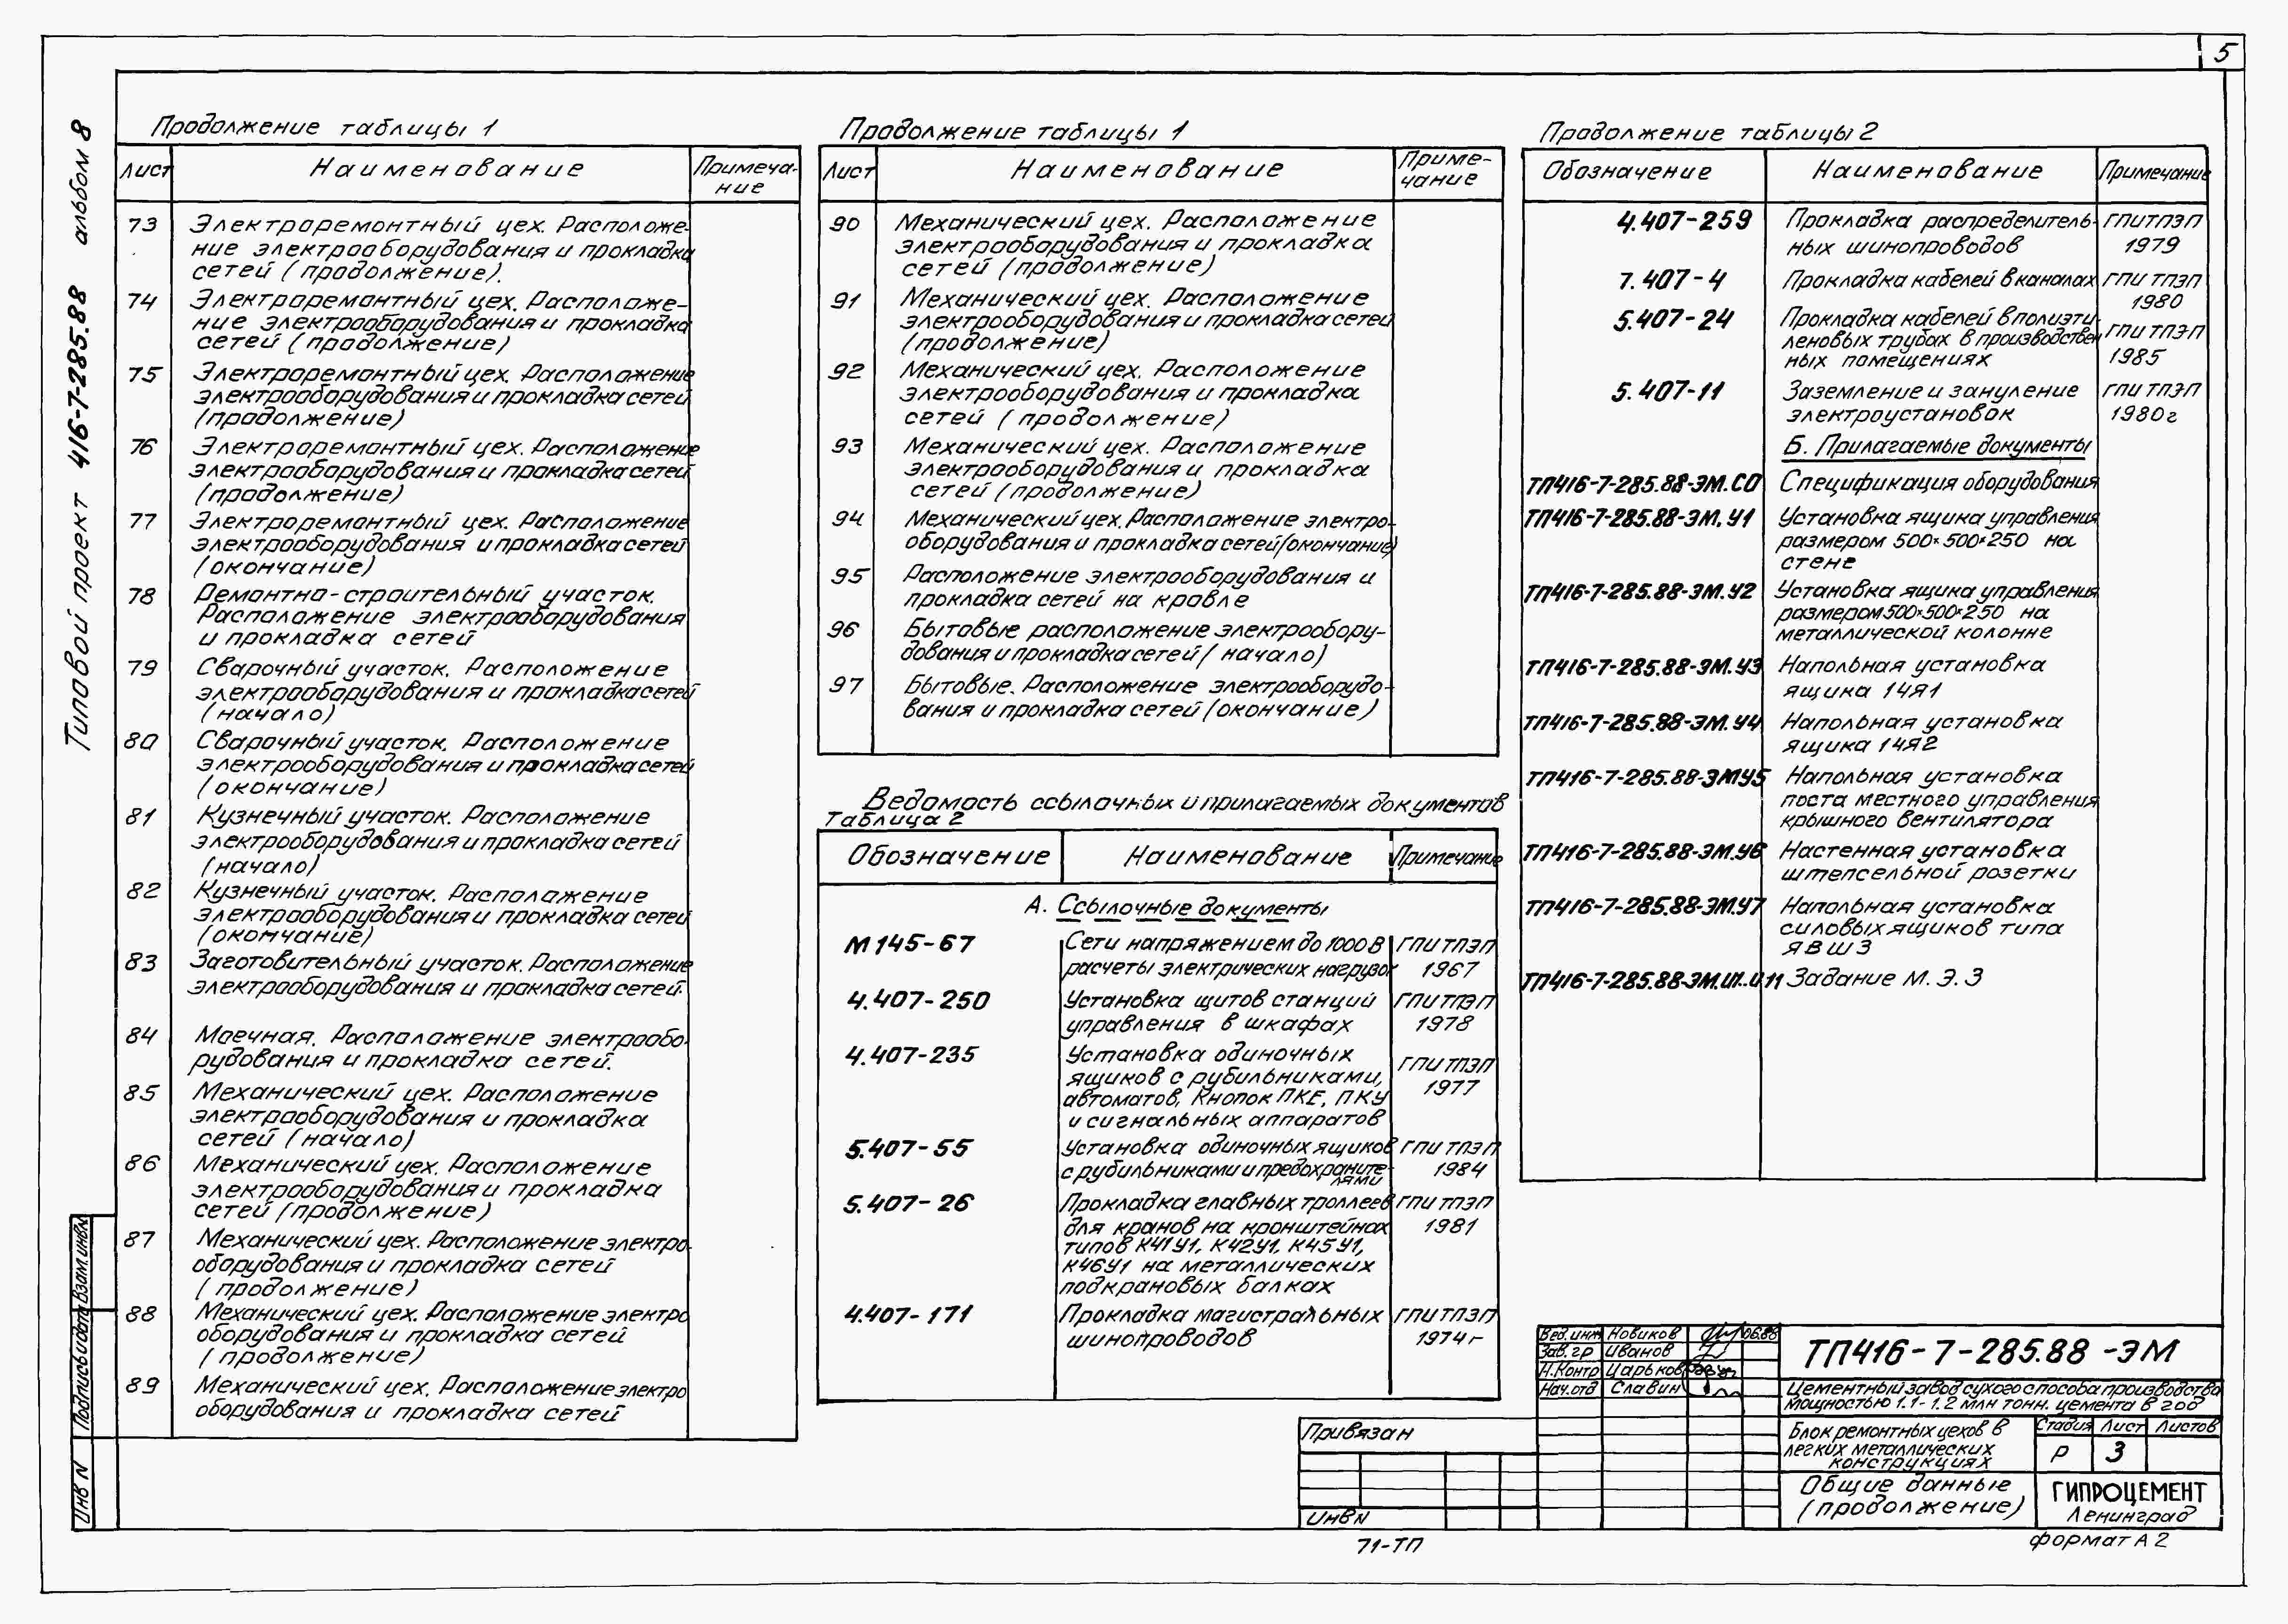 5
Типовой проект 416-7-285.88 альбом 8
Продолжение таблицы 1
Лист Наименование Примеча-
ние
73 Электроремонтный цех. Расположе-
ние электрооборудования и прокладка
сетей (продолжение).
74 Электроремонтный цех. Расположе-
ние электрооборудования и прокладка
сетей (продолжение)
75 Электроремонтный цех. Расположение
электрооборудования и прокладка сетей
(продолжение)
76 Электроремонтный цех. Расположение
электрооборудования и прокладка сетей
(продолжение)
77 Электроремонтный цех. Расположение
электрооборудования и прокладка сетей
(окончание)
78 Ремонтно-строительный участок.
Расположение электрооборудования
и прокладка сетей
79 Сварочный участок. Расположение
электрооборудования и прокладка сетей
(начало)
80 Сварочный участок. Расположение
электрооборудования и прокладка сетей
(окончание)
81 Кузнечный участок. Расположение
электрооборудования и прокладка сетей
(начало)
82 Кузнечный участок. Расположение
электрооборудования и прокладка сетей
(окончание)
83 Заготовительный участок. Расположение
электрооборудования и прокладка сетей.
84 Моечная. Расположение электрообо-
рудования и прокладка сетей.
85 Механический цех. Расположение
электрооборудования и прокладка
сетей (начало)
86 Механический цех. Расположение
электрооборудования и прокладка
сетей (продолжение)
87 Механический цех. Расположение электро-
оборудования и прокладка сетей
(продолжение)
88 Механический цех. Расположение электро
оборудования и прокладка сетей
(продолжение)
89 Механический цех. Расположение электро
оборудования и прокладка сетей
Продолжение таблицы 1
Лист Наименование Приме-
чание
90 Механический цех. Расположение
электрооборудования и прокладка
сетей (продолжение)
91 Механический цех. Расположение
электрооборудования и прокладка сетей
(продолжение)
92 Механический цех. Расположение
электрооборудования и прокладка
сетей (продолжение)
93 Механический цех. Расположение
электрооборудования и прокладка
сетей (продолжение)
94 Механический цех. Расположение электро-
оборудования и прокладка сетей (окончание)
95 Расположение электрооборудования и
прокладка сетей на кровле
96 Бытовые расположение электрообору-
дования и прокладка сетей (начало)
97 Бытовые. Расположение электрооборудо-
вания и прокладка сетей (окончание)
Ведомость ссылочных и прилагаемых документов
Таблица 2
Обозначение Наименование Примечание
А. Ссылочные документы
М145-67 Сети напряжением до 1000 В ГПИ ТПЭП
расчеты электрических нагрузок 1967
4.407-250 Установка щитов станций ГПИ ТПЭП
управления в шкафах 1978
4.407-235 Установка одиночных ГПИ ТПЭП
ящиков с рубильниками, 1977
автоматов, кнопок ПКЕ, ПКУ
и сигнальных аппаратов
5.407-55 Установка одиночных ящиков ГПИ ТПЭП
с рубильниками и предохраните- 1984
лями
5.407-26 Прокладка главных троллеев ГПИ ТПЭП
для кранов на кронштейнах 1981
типов К41У1, К42У1, К45У1,
К46У1 на металлических
подкрановых балках
4.407-171 Прокладка магистральных ГПИ ТПЭП
шинопроводов 1974 г
Продолжение таблицы 2
Обозначение Наименование Примечание
4.407-259 Прокладка распределитель- ГПИ ТПЭП
ных шинопроводов 1979
7.407-4 Прокладка кабелей в каналах ГПИ ТПЭП
1980
5.407-24 Прокладка кабелей в полиэти-
леновых трубах в производствен ГПИ ТПЭП
ных помещениях 1985
5.407-11 Заземление и зануление ГПИ ТПЭП
электроустановок 1980 г
Б. Прилагаемые документы
ТП416-7-285.88-ЭМ.СО Спецификация оборудования
ТП416-7-285.88-ЭМ.У1 Установка ящика управления
размером 500×500×250 на
стене
ТП416-7-285.88-ЭМ.У2 Установка ящика управления
размером 500×500×250 на
металлической колонне
ТП416-7-285.88-ЭМ.У3 Напольная установка
ящика 14Я1
ТП416-7-285.88-ЭМ.У4 Напольная установка
ящика 14Я2
ТП416-7-285.88-ЭМУ5 Напольная установка
поста местного управления
крышного вентилятора
ТП416-7-285.88-ЭМ.У6 Настенная установка
штепсельной розетки
ТП416-7-285.88-ЭМ.У7 Напольная установка
силовых ящиков типа
ЯВШЗ
ТП416-7-285.88-ЭМ.И1..И11 Задание М.Э.З
Вед.инж Новиков 06.88
Зав.гр Иванов
Н.Контр Царьков
Нач.отд Славин
ТП416-7-285.88-ЭМ
Цементный завод сухого способа производства
мощностью 1.1-1.2 млн тонн. цемента в год
Блок ремонтных цехов в
легких металлических
конструкциях
Стадия Лист Листов
Р 3
Общие данные
(продолжение)
ГИПРОЦЕМЕНТ
Ленинград
Привязан
Инв N
71-ТП
формат А2
Взам.инв.N
Подпись и дата
Инв N